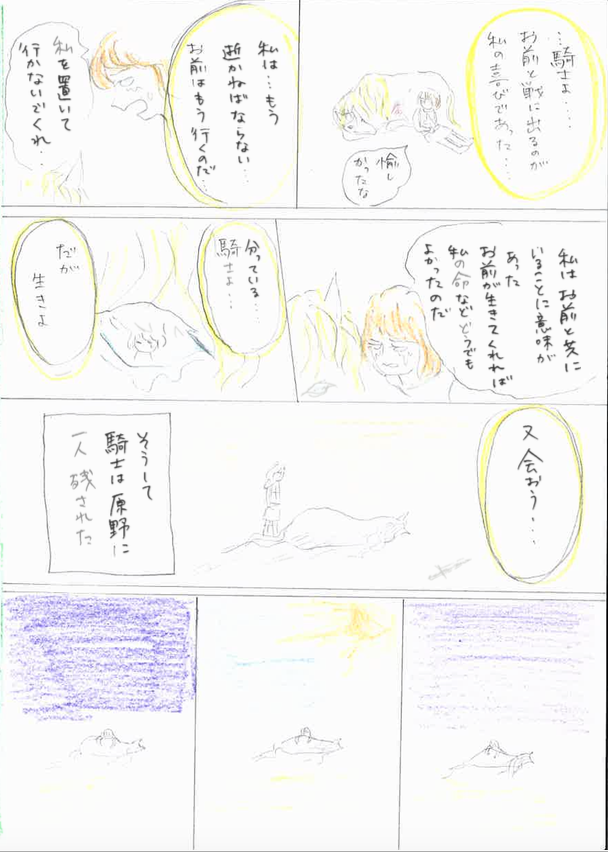 …騎士よ….
お前と戦に出るのが
私の喜びであった….
愉し
かったな
私は…もう
逝かねばならない…
お前はもう行くのだ…
私を置いて
行かないでくれ…
私はお前と共に
いることに意味が
あった
お前が生きてくれれば
私の命などどうでも
よかったのだ
分っている…
騎士よ…
だが
生きよ
又会おう….
そうして
騎士は原野に
一人残された